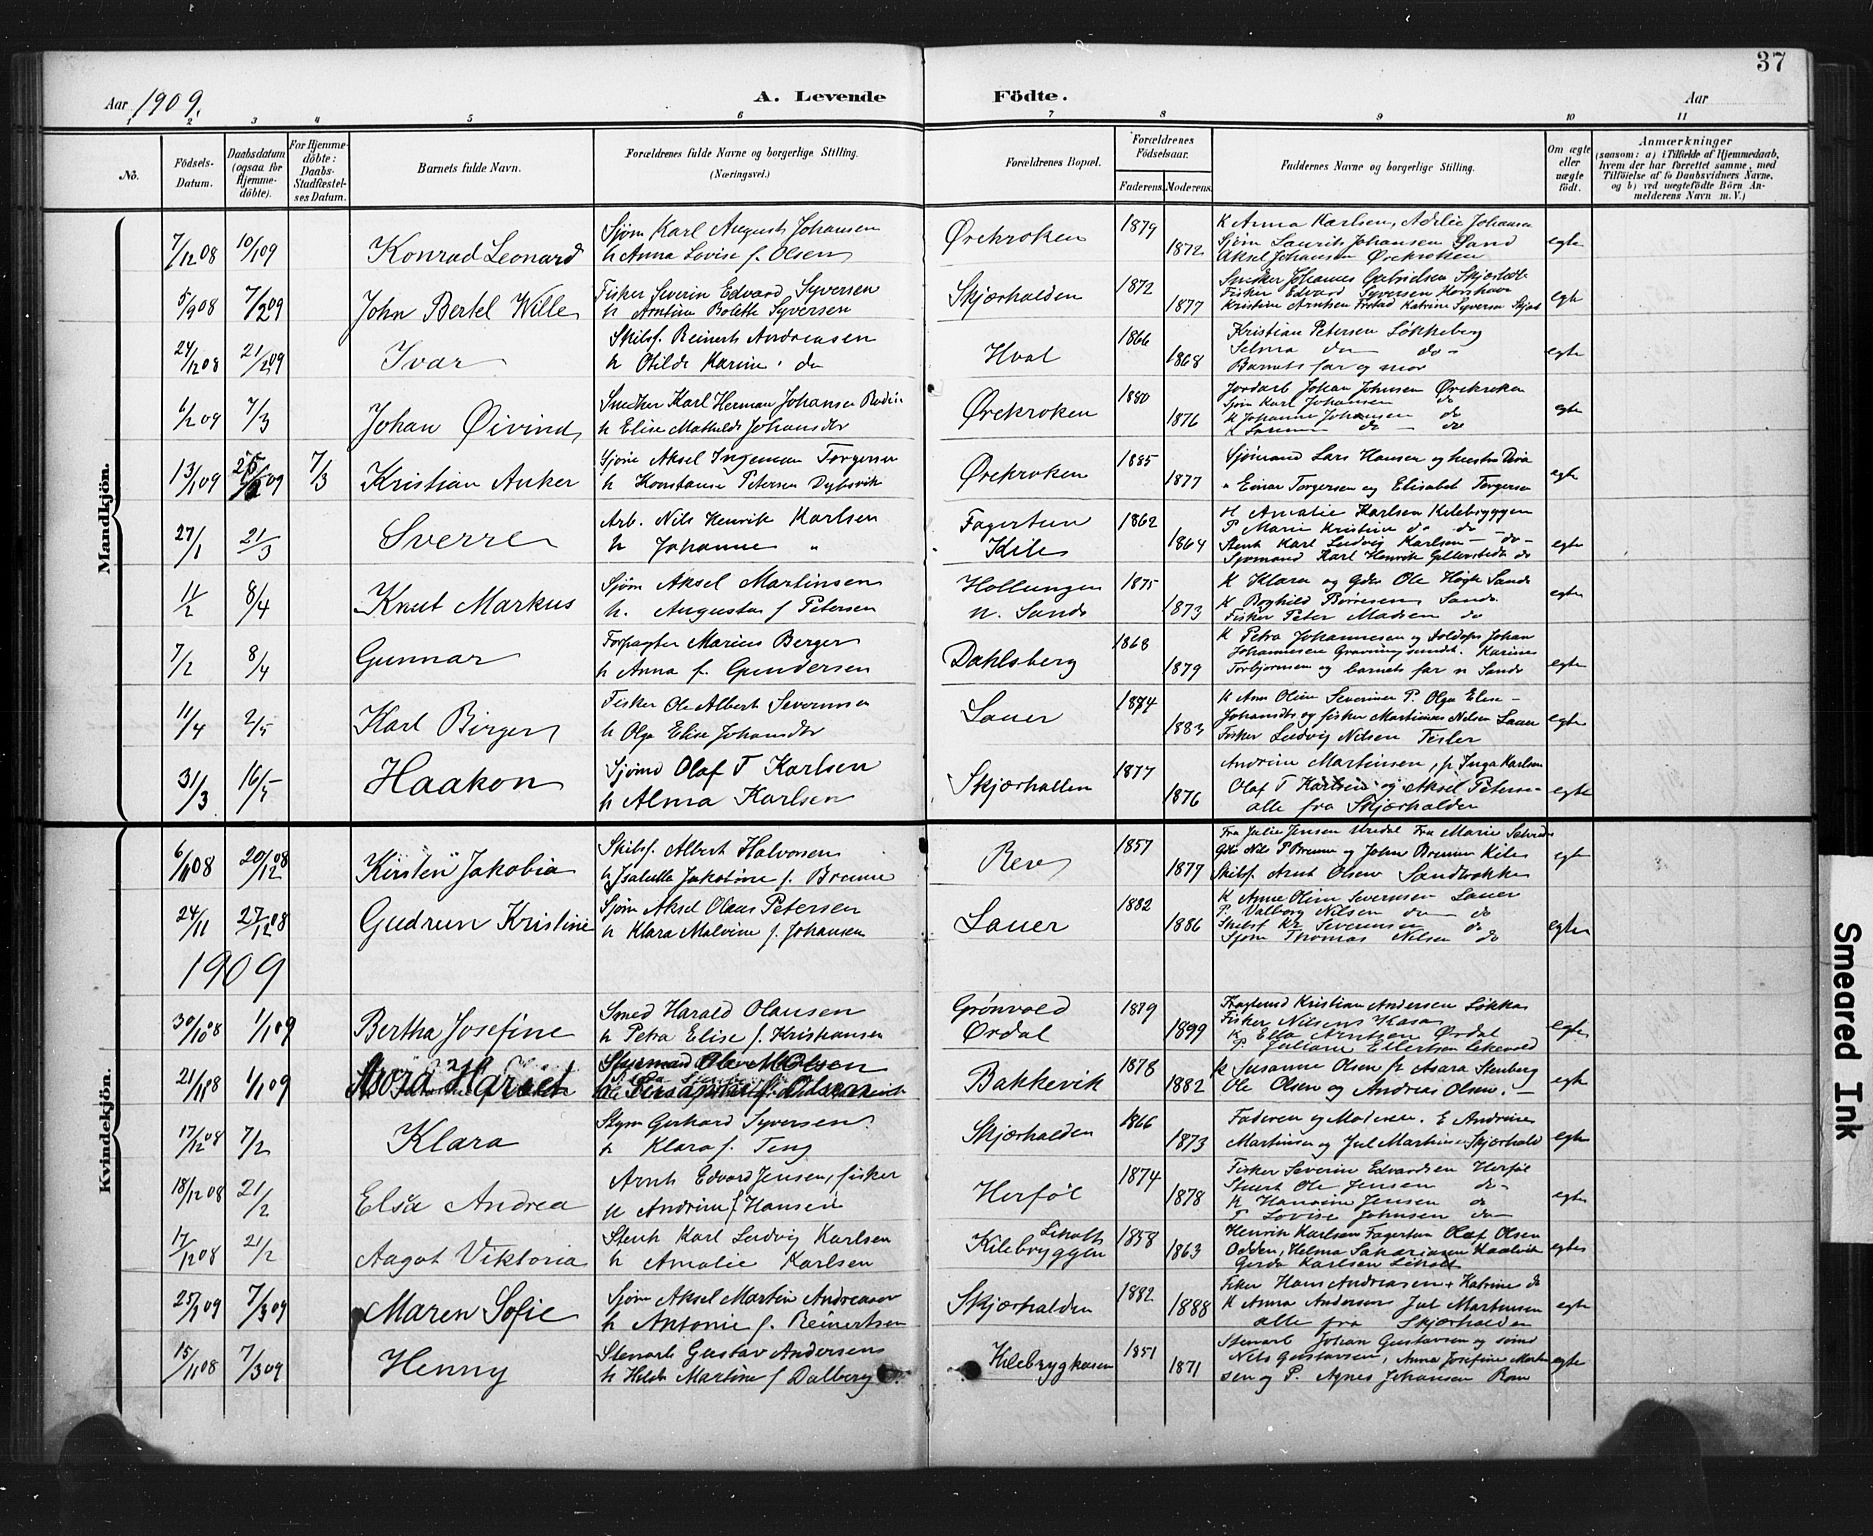 37
Aar 1909.
A. Levende Födte.
Aar
1 2 3 4 5 6 7 8 9 10 11
No.
Födsels-Datum.
Daabsdatum (ogsaa för Hjemme-döbte).
For Hjemme-döbte: Daabs-Stadfæstel-ses Datum.
Barnets fulde Navn.
Forældrenes fulde Navne og borgerlige Stilling.
(Næringsvei.)
Forældrenes Bopæl.
Forældrenes Födselsaar.
Faderens. Moderens.
Faddernes Navne og borgerlige Stilling.
Om ægte eller uægte födt.
Anmærkninger
(saasom: a) i Tilfælde af Hjemmedaab,
hvem der har forrettet samme, med
Tilföielse af to Daabsvidners Navne,
og b) ved uegtefödte Börn An-
melderens Navn m. V.)
Mandkjön.
7/12 08 10/1 09 Konrad Leonard Sjöm Karl August Johansen
h Anna Lovise f. Olsen Ørekroken 1879 1872
K Anna Karlsen, Adelie Johansen
Sjöm Laurits Johansen Sand
Aksel Johansen Ørekroken egte
5/9 08 7/2 09 John Bertel Wille Fisker Severin Edvard Syversen
h Arntine Bolette Syversen Skjærhalden 1872 1877
Snedker Johannes Gabrielsen
Fisker Edvard Syversen
Kristine Arntsen Katrine Syversen egte
24/12 08 21/2 09 Ivar Skibsf. Reinert Andreasen
h Otilde Karine do Hval 1866 1868
Kristian Petersen Løkkeberg
Selma do do
Barnets far og mor egte
6/2 09 7/3 Johan Øivind Snedker Karl Herman Johansen
h Elise Mathilde Johansdtr Ørekroken 1880 1876
Jordarb Johan Johnsen Ørekroken
Sjöm Karl Johansen do
K Johanne Johansen do
do do egte
13/1 09 7/3 Kristian Anker Sjöm Aksel Ingeman Torgersen
h Konstanse Petersen Dybsvik Ørekroken 1885 1877
Sjömand Lars Hansen og hustru
" Einar Torgersen og Elisabet Torgersen egte
27/1 21/3 Sverre Arb. Nils Henrik Karlsen
h Johanne " Fagertun
Kile 1862 1864
H Amalie Karlsen Kilebryggen
P Marie Kristine do do
Stenh Karl Ludvig Karlsen - do -
Sjomand Karl Henrik do egte
11/2 8/4 Knut Markus Sjöm Aksel Martinsen
h. Augusta f Petersen Hollungen
n. Sande 1875 1873
K Klara og Gdr Ole Høgh Sande
K Borghild Børresen Sande
Fisker Peter Madsen do egte
7/2 8/4 Gunnar Forpagter Marius Berger
h Anna f. Gundersen Dahlsberg 1868 1879
K Petra Johannesen og Johan
Johannesen Karine
Torbjornsen og barnets far n Sande egte
11/4 2/5 Karl Birger Fisker Ole Albert Severinsen
h Olga Elise Johansdtr Lauer 1884 1883
K Ane Oline Severinsen P. Olga Elise
Johansdtr og fisker Martinius Nilsen Lauer
Fisker Ludvig Nilsen Tisler egte
31/3 16/5 Haakon Sjömd Olaf T Karlsen
h Alma Karlsen Skjærhallen 1877 1876
Andrine Martinsen, p Inga Karlsen
Olaf T Karlsen og Aksel Petersen
alle fra Skjærhalden egte
Kvindekjön.
6/11 08 20/12 08 Kirsten Jakobia Skibsf. Albert Halvorsen
h Isabella Jakobine f. Brenne Rev 1857 1877
Fru Julie Jensen Fru Marie
Gdr Nils P Brenne og John Brenne Kile
Skibsf Arnt Olsen Sandbakke egte
24/11 27/12 08 Gudrun Kristine Sjöm Aksel Olaus Petersen
h Klara Malvine f. Johansen Lauer 1882 1886
K Anne Oline Severinsen Lauer
P. Valborg Nilsen do do
Skibsf Kr Severinsen do
Sjöm Thomas Nilsen do egte
1909
30/10 08 1/1 09 Bertha Josefine Smed Harald Olausen
h Petra Elise f. Kristiansen Grønvold
Ørdal 1879 1899
Kristian Andersen Løkka
Fisker Nilsen Kasa
K Ella Arntsen Ørdal
P Juliane Ellertsen egte
21/11 08 1/1 09 Asora Harriet Styrmand Ole Olsen
Bakkevik 1878 1882
K Susanne Olsen P Asara Stenberg
Ole Olsen og Andreas Olsen. egte
17/12 08 7/2 Klara Styrm Gerhard Syversen
h Klara f. Teng Skjærhalden 1866 1873
Faderen og Moderen. E Andrine
Martinsen og Jul Martinsen Skjærhald egte
18/12 08 21/2 Elsa Andrea Arnt Edvard Jensen, fisker
h Andrine f Hansen Herføl 1874 1878
Fisker Severin Edvardsen Herføl
Stuert Ole Jensen do
K Hansine Jensen do
P Lovise Johnsen do egte
17/12 08 21/2 Aagot Viktoria Stenh Karl Ludvig Karlsen
h Amalie Karlsen Liholt
Kilebryggen 1858 1863
Henrik Karlsen Fagertun Olaf Olsen
Odden, Helma Sakariasen
Gerda Karlsen Liholt egte
25/1 09 7/3 09 Maren Sofie Sjöm Aksel Martin Andreasen
h Antonie f. Reinertsen Skjærhalden 1882 1888
Fisker Hans Andreasen + Katrine do
K Anna Andersen Jul Martinsen
alle fra Skjærhalden egte
15/11 08 7/3 09 Henny Stenarb Gustav Andersen
h Hilda Martine f Dalberg Kilebrygkasen 1851 1871
Stenarb Johan Gustavsen og
Nils Gustavsen, Anna Josefine Martin
sen og P. Agnes Johansen Rom egte
Smeared Ink